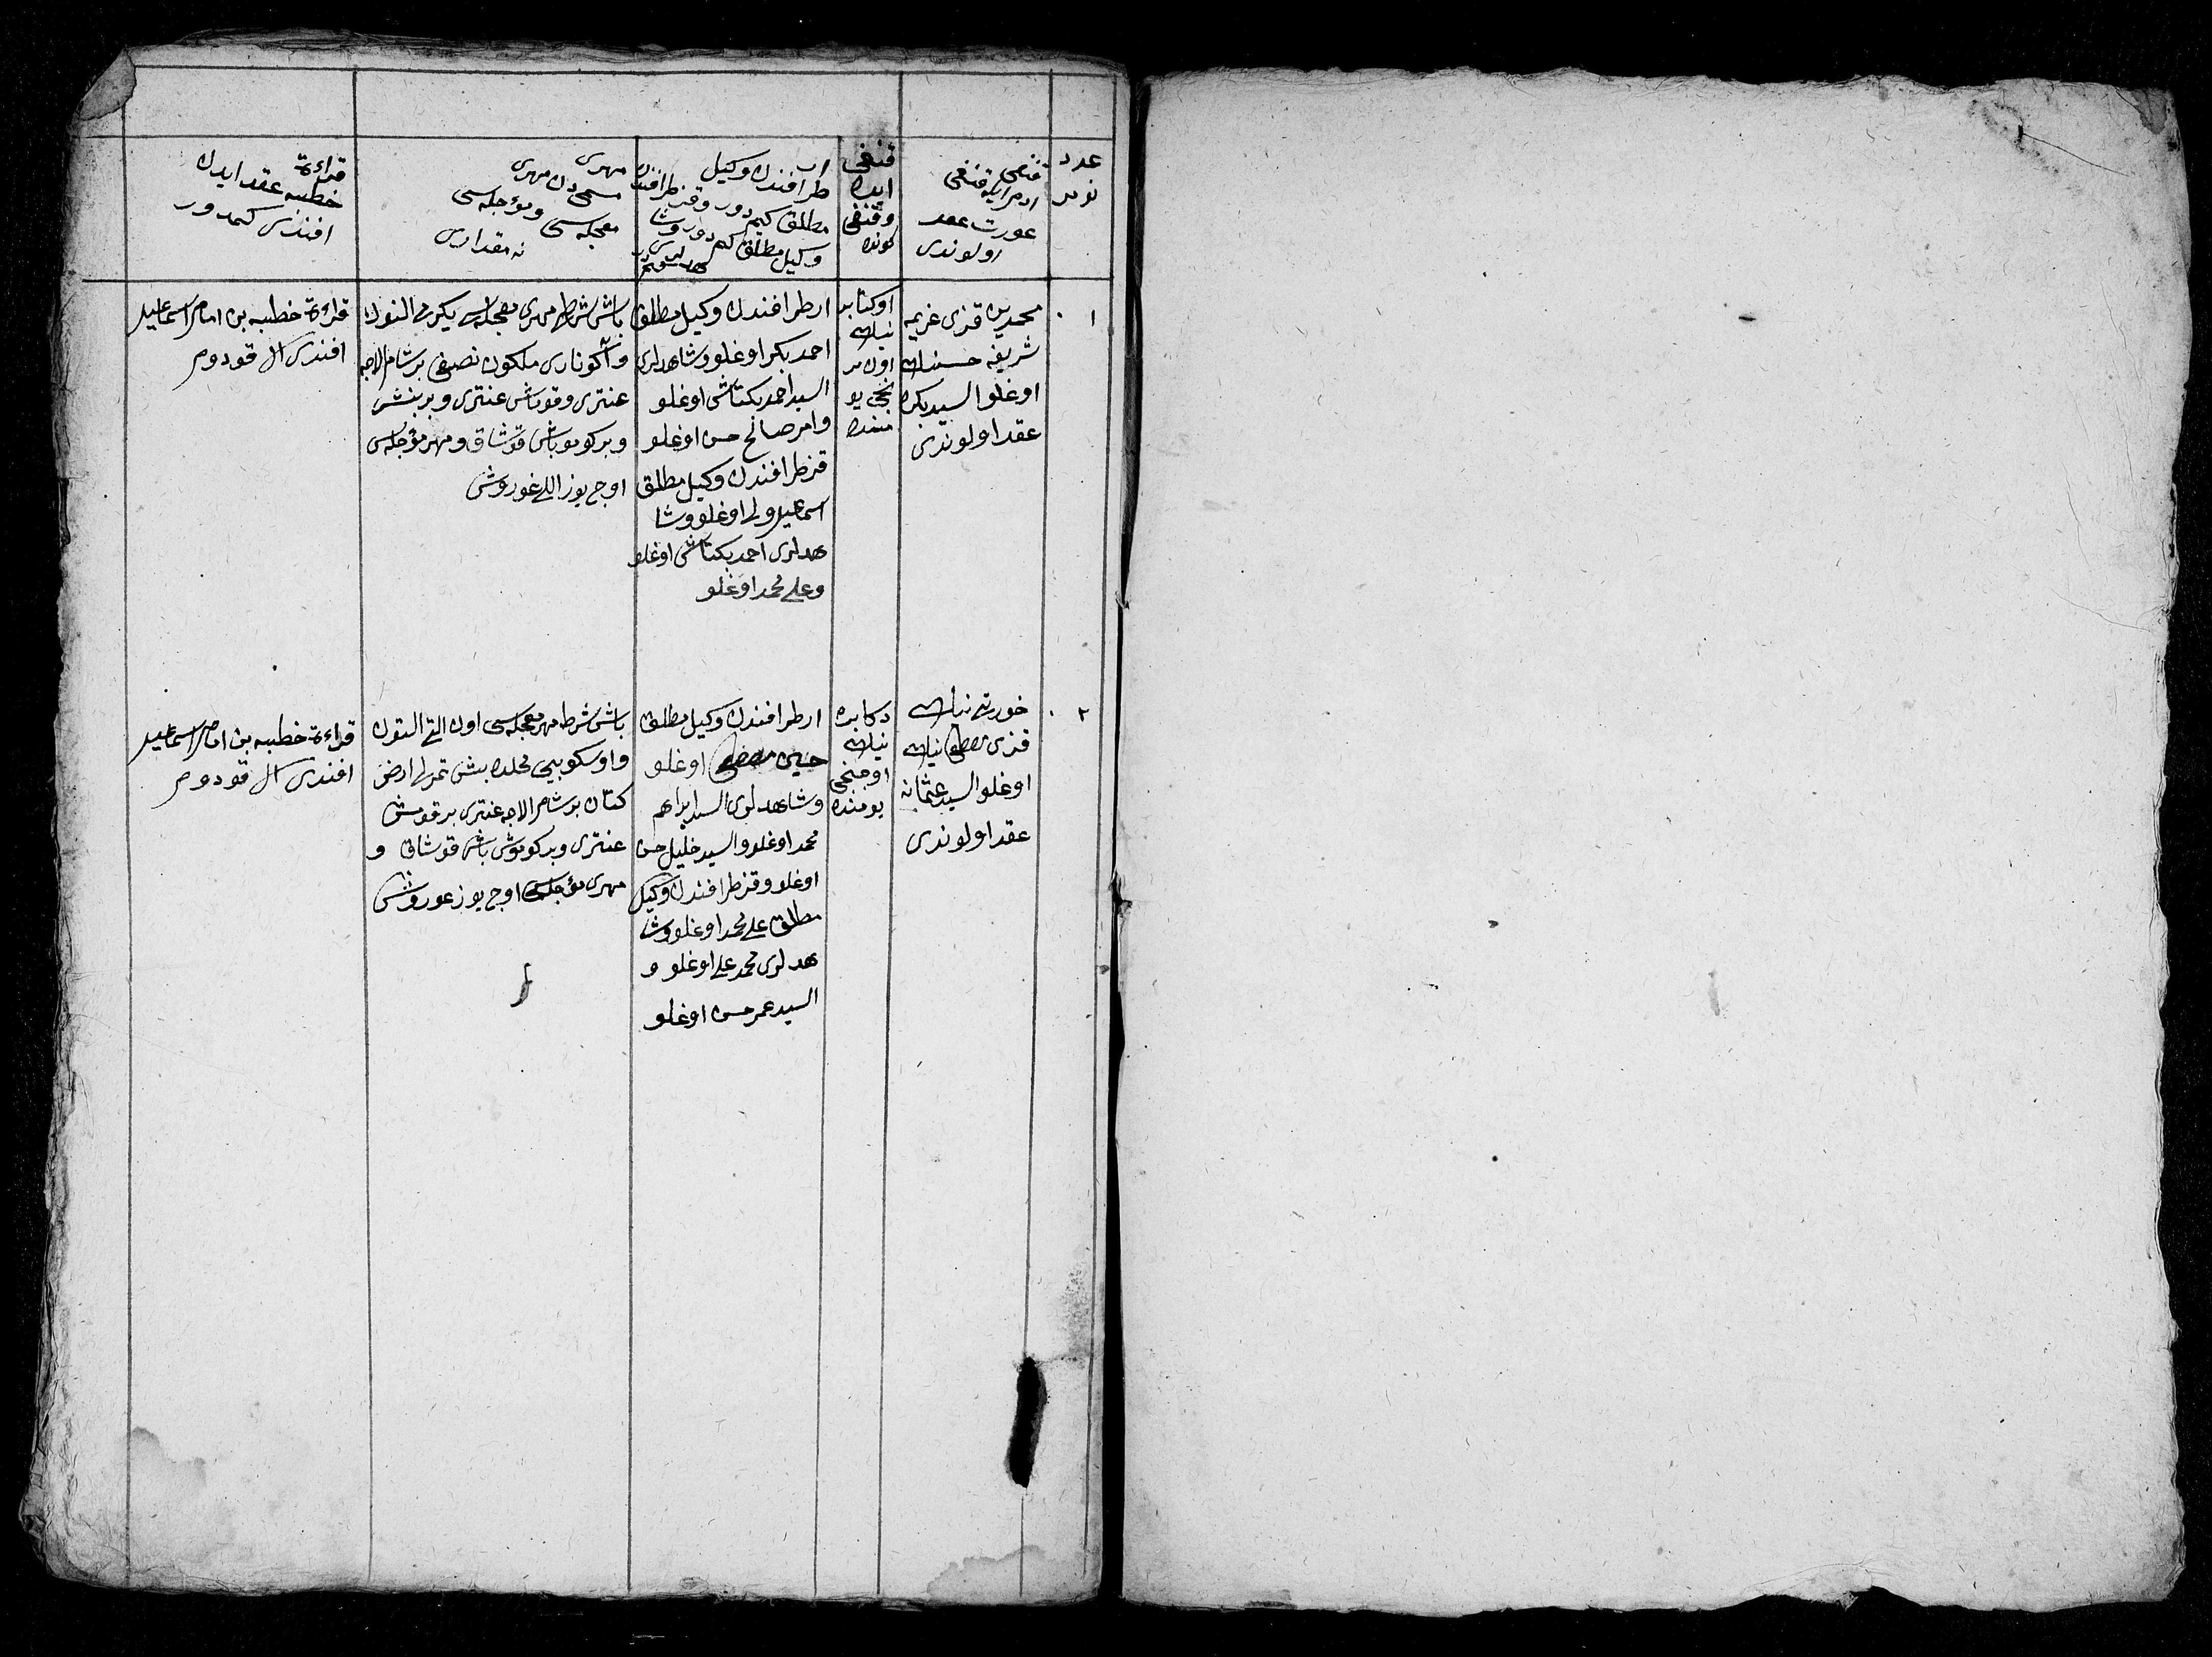 عدد
نومر
قنغی
ادم ایله قنغی
عورت عقد
اولوندی
قنغی
ایده
و قنغی
کونده
ار
طرافندن وکیل
مطلق کیم دور و قز طرافندن
وکیل مطلق کم دور وشا
هدلری
مهری
مسمی دن مهری
معجلسی و مؤجلسی
نه مقداری
قراءة
خطبه عقد ایدن
افندی کمدور
۱
محمدین قزی عزیمه
شریفه حسن
اوغلو السید بکره
عقد اولوندی
اوکتابر
اون بر
نجی یو
منده
ار طرافندن وکیل مطلق
احمد بکر اوغلو و شاهدلری
السید احمد بکتاشی اوغلو
وامر صالح حسن اوغلو
قز طرافندن وکیل مطلق
اسماعیل ولی اوغلو وشا
هدلری احمد بکتاشی اوغلو
وعلی محمد اوغلو
باش شرط مهری معجلسی یکرمی التون
و آکوناری ملکون نصفی بر شام الاجه
عنتری و قوماش عنتری و بر بنش
و بر کوموباش قوشاق و مهر مؤجلسی
اوج یوز اللی غوروش
قراءة خطبه بن امام اسماعیل
افندی ال قودوم
۲
قزی مصطفی
اوغلو السید عثمانه
عقد اولوندی
دکابره
اوجنجی
یومنده
ار طرافندن وکیل مطلق
حسین مصطفی اوغلو
وشاهدلری السید ابراهم
محمد اوغلو والسید خلیل حسن
اوغلو و قز طرافندن وکیل
مطلق علی محمد اوغلو وشا
هدلری محمد علی اوغلو و
السید عمر حسن اوغلو
باش شرط مهر معجلسی اون التی التون
و اوسکوبیی محلده بش تمرلی ارض
کتان بر شام الاجه عنتری بر قوماش
عنتری و بر کوموش باش قوشاق و
مهری مؤجلسی اوج یوز غوروش
قراءة خطبه بن امام اسماعیل
افندی ال قودوم